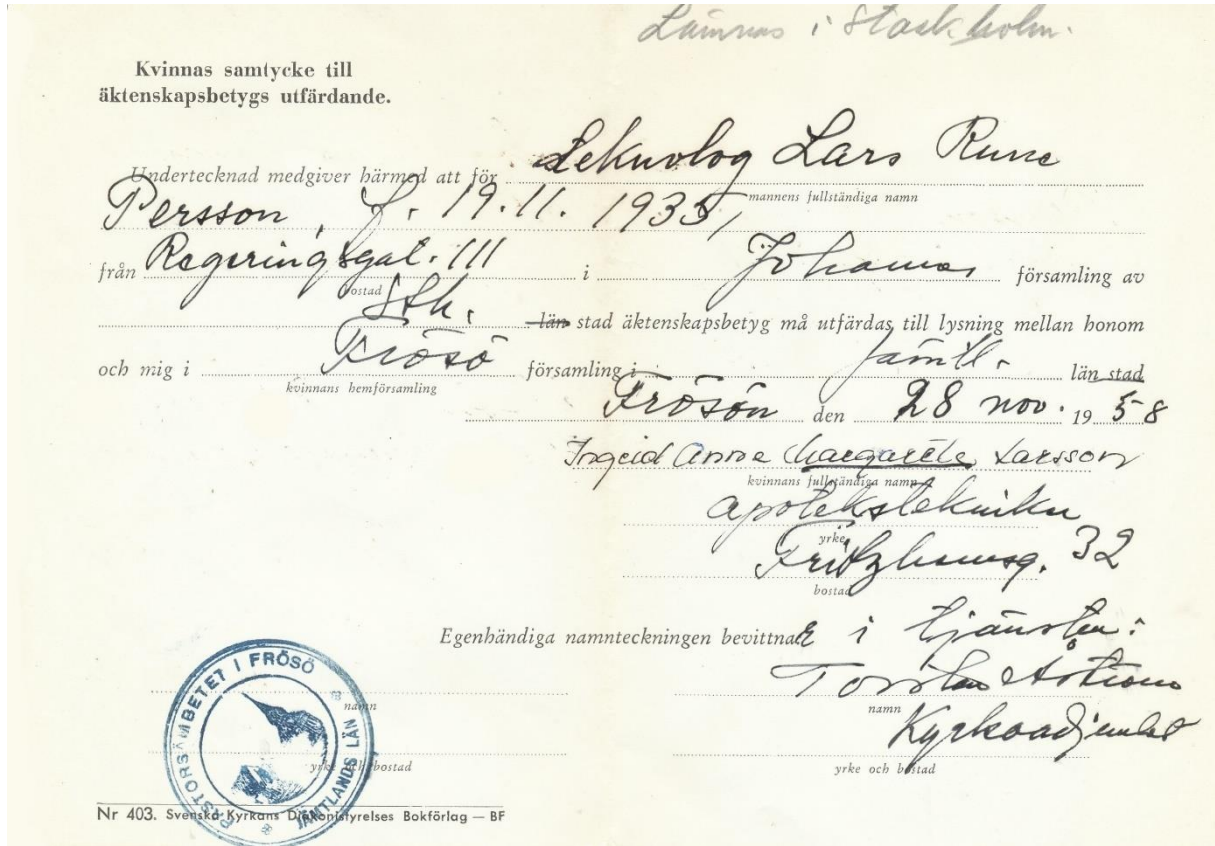 Lämnas i Stockholm.
Kvinnas samtycke till
äktenskapsbetygs utfärdande.
Undertecknad medgiver härmed att för Teknolog Lars Rune
mannens fullständiga namn
Persson, f. 19.11. 1935,
från Regeringsgat. 111 i Johannes församling av
bostad
Sth. län stad äktenskapsbetyg må utfärdas till lysning mellan honom
och mig i Frösö församling i Jämtl. län stad
kvinnans hemförsamling
Frösön den 28 nov. 1958
Ingrid Anna Margareta Larsson
kvinnans fullständiga namn
apotekstekniker
yrke
Fritzhemsg. 32
bostad
Egenhändiga namnteckningen bevittnar i tjänsten:
Torsten Åström
namn namn
Kyrkoadjunkt
yrke och bostad yrke och bostad
PASTORSÄMBETET I FRÖSÖ
JÄMTLANDS LÄN
Nr 403. Svenska Kyrkans Diakonistyrelses Bokförlag — BF